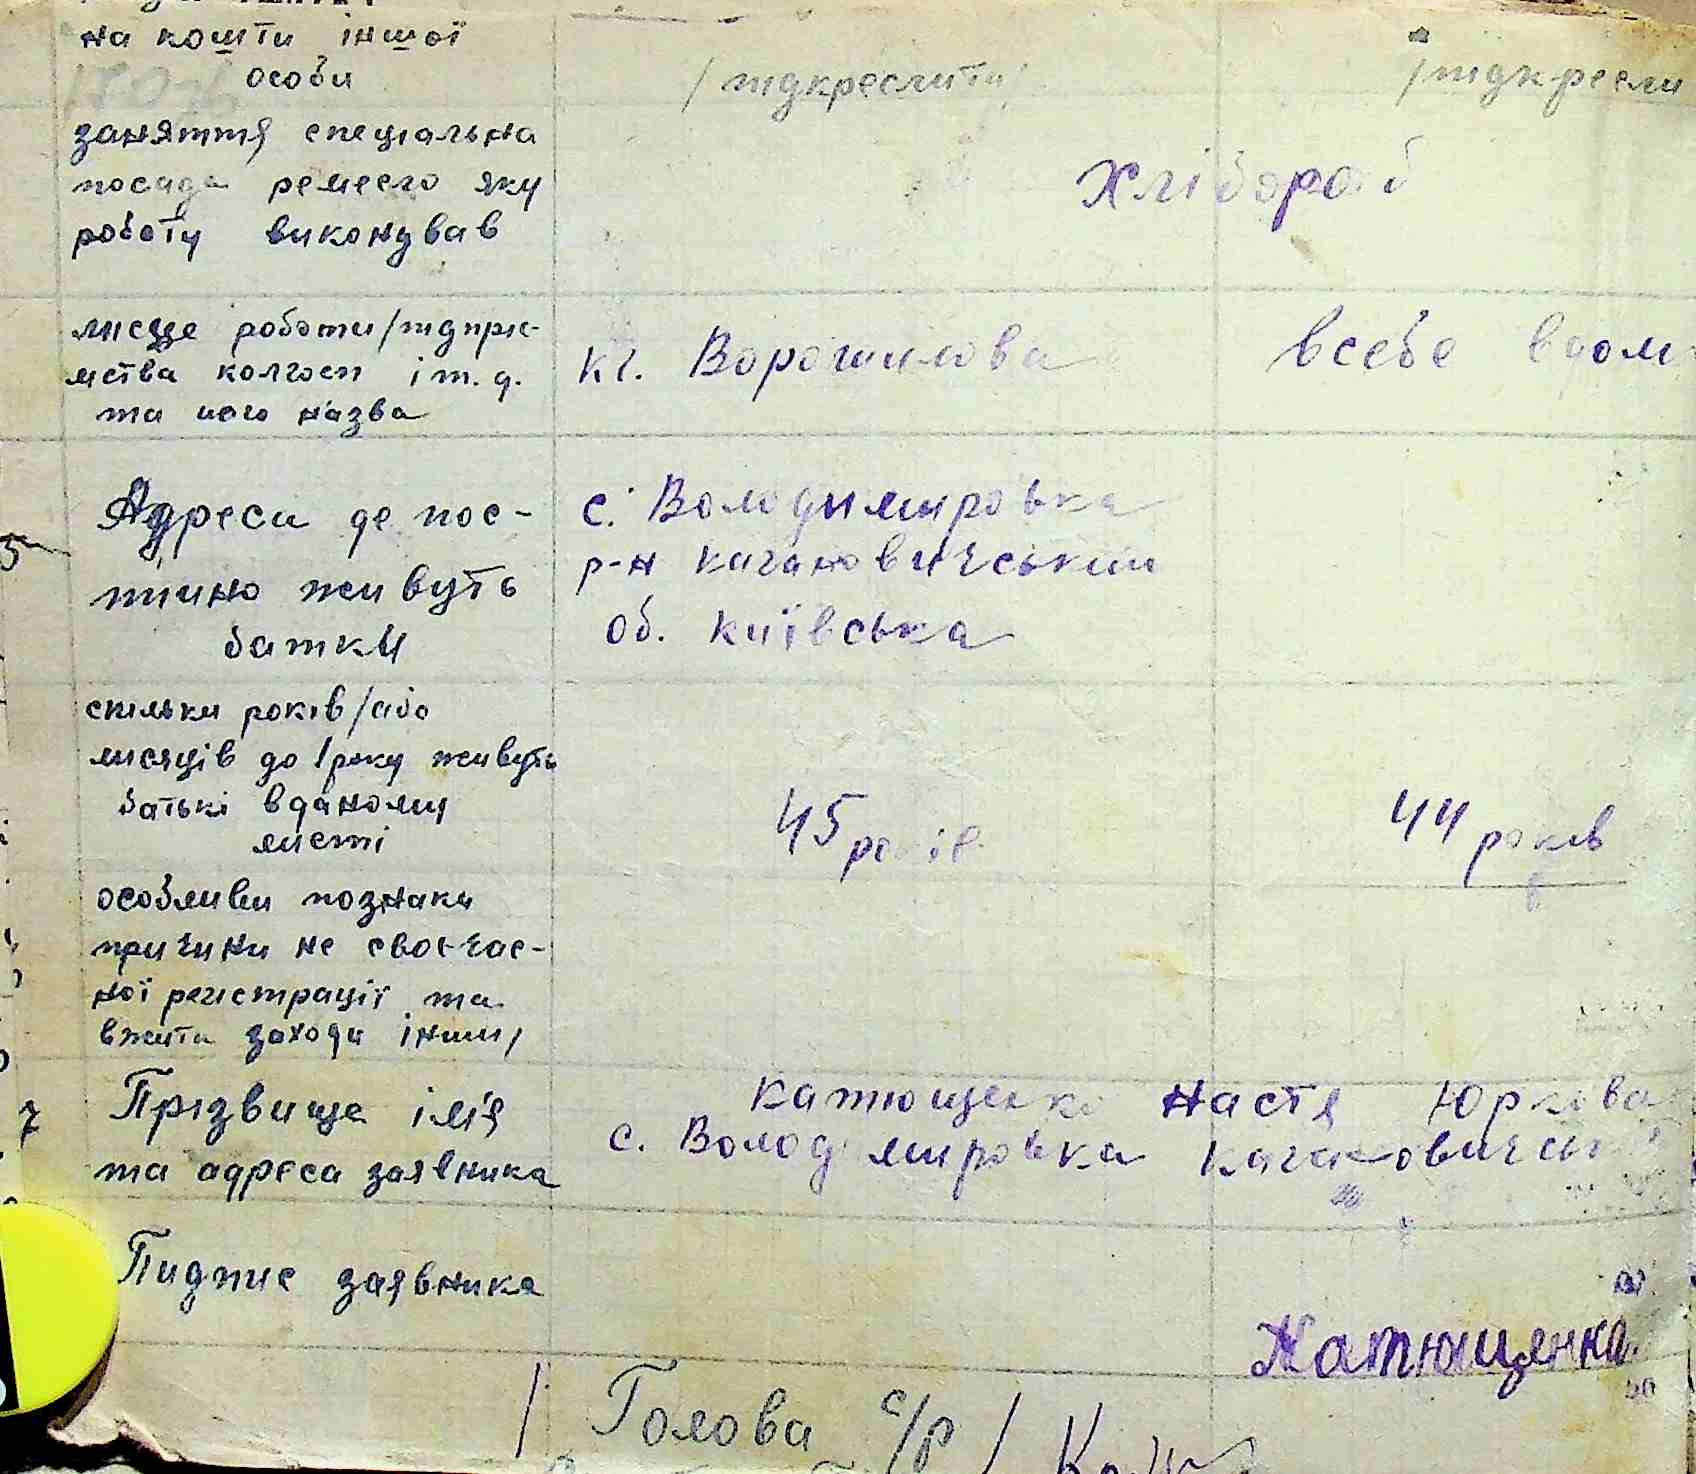 на кошти іншої
особи
/підкреслити/
/підкресли
заняття спеціальна
посада ремесло яку
роботу виконував
Хлібороб
місце роботи/підприє-
мства колгосп і т.д.
та його назва
кг. Ворошилова
всебе вдом
5
Адреси де пос-
тійно живуть
батьки
с. Володимировка
р-н кагановичський
об. київська
скільки років/або
місяців до 1 року живуть
батькі вданому
місті
45 років
44 років
особливи познаки
причини не своєчас-
ної регістрації та
вжити заходи інши/
7
Прізвище ім'я
та адреса заявника
Катющенко Настя Юркова
с. Володимировка кагановичськ
Підпис заявника
Катющенко
/ Голова с/р /